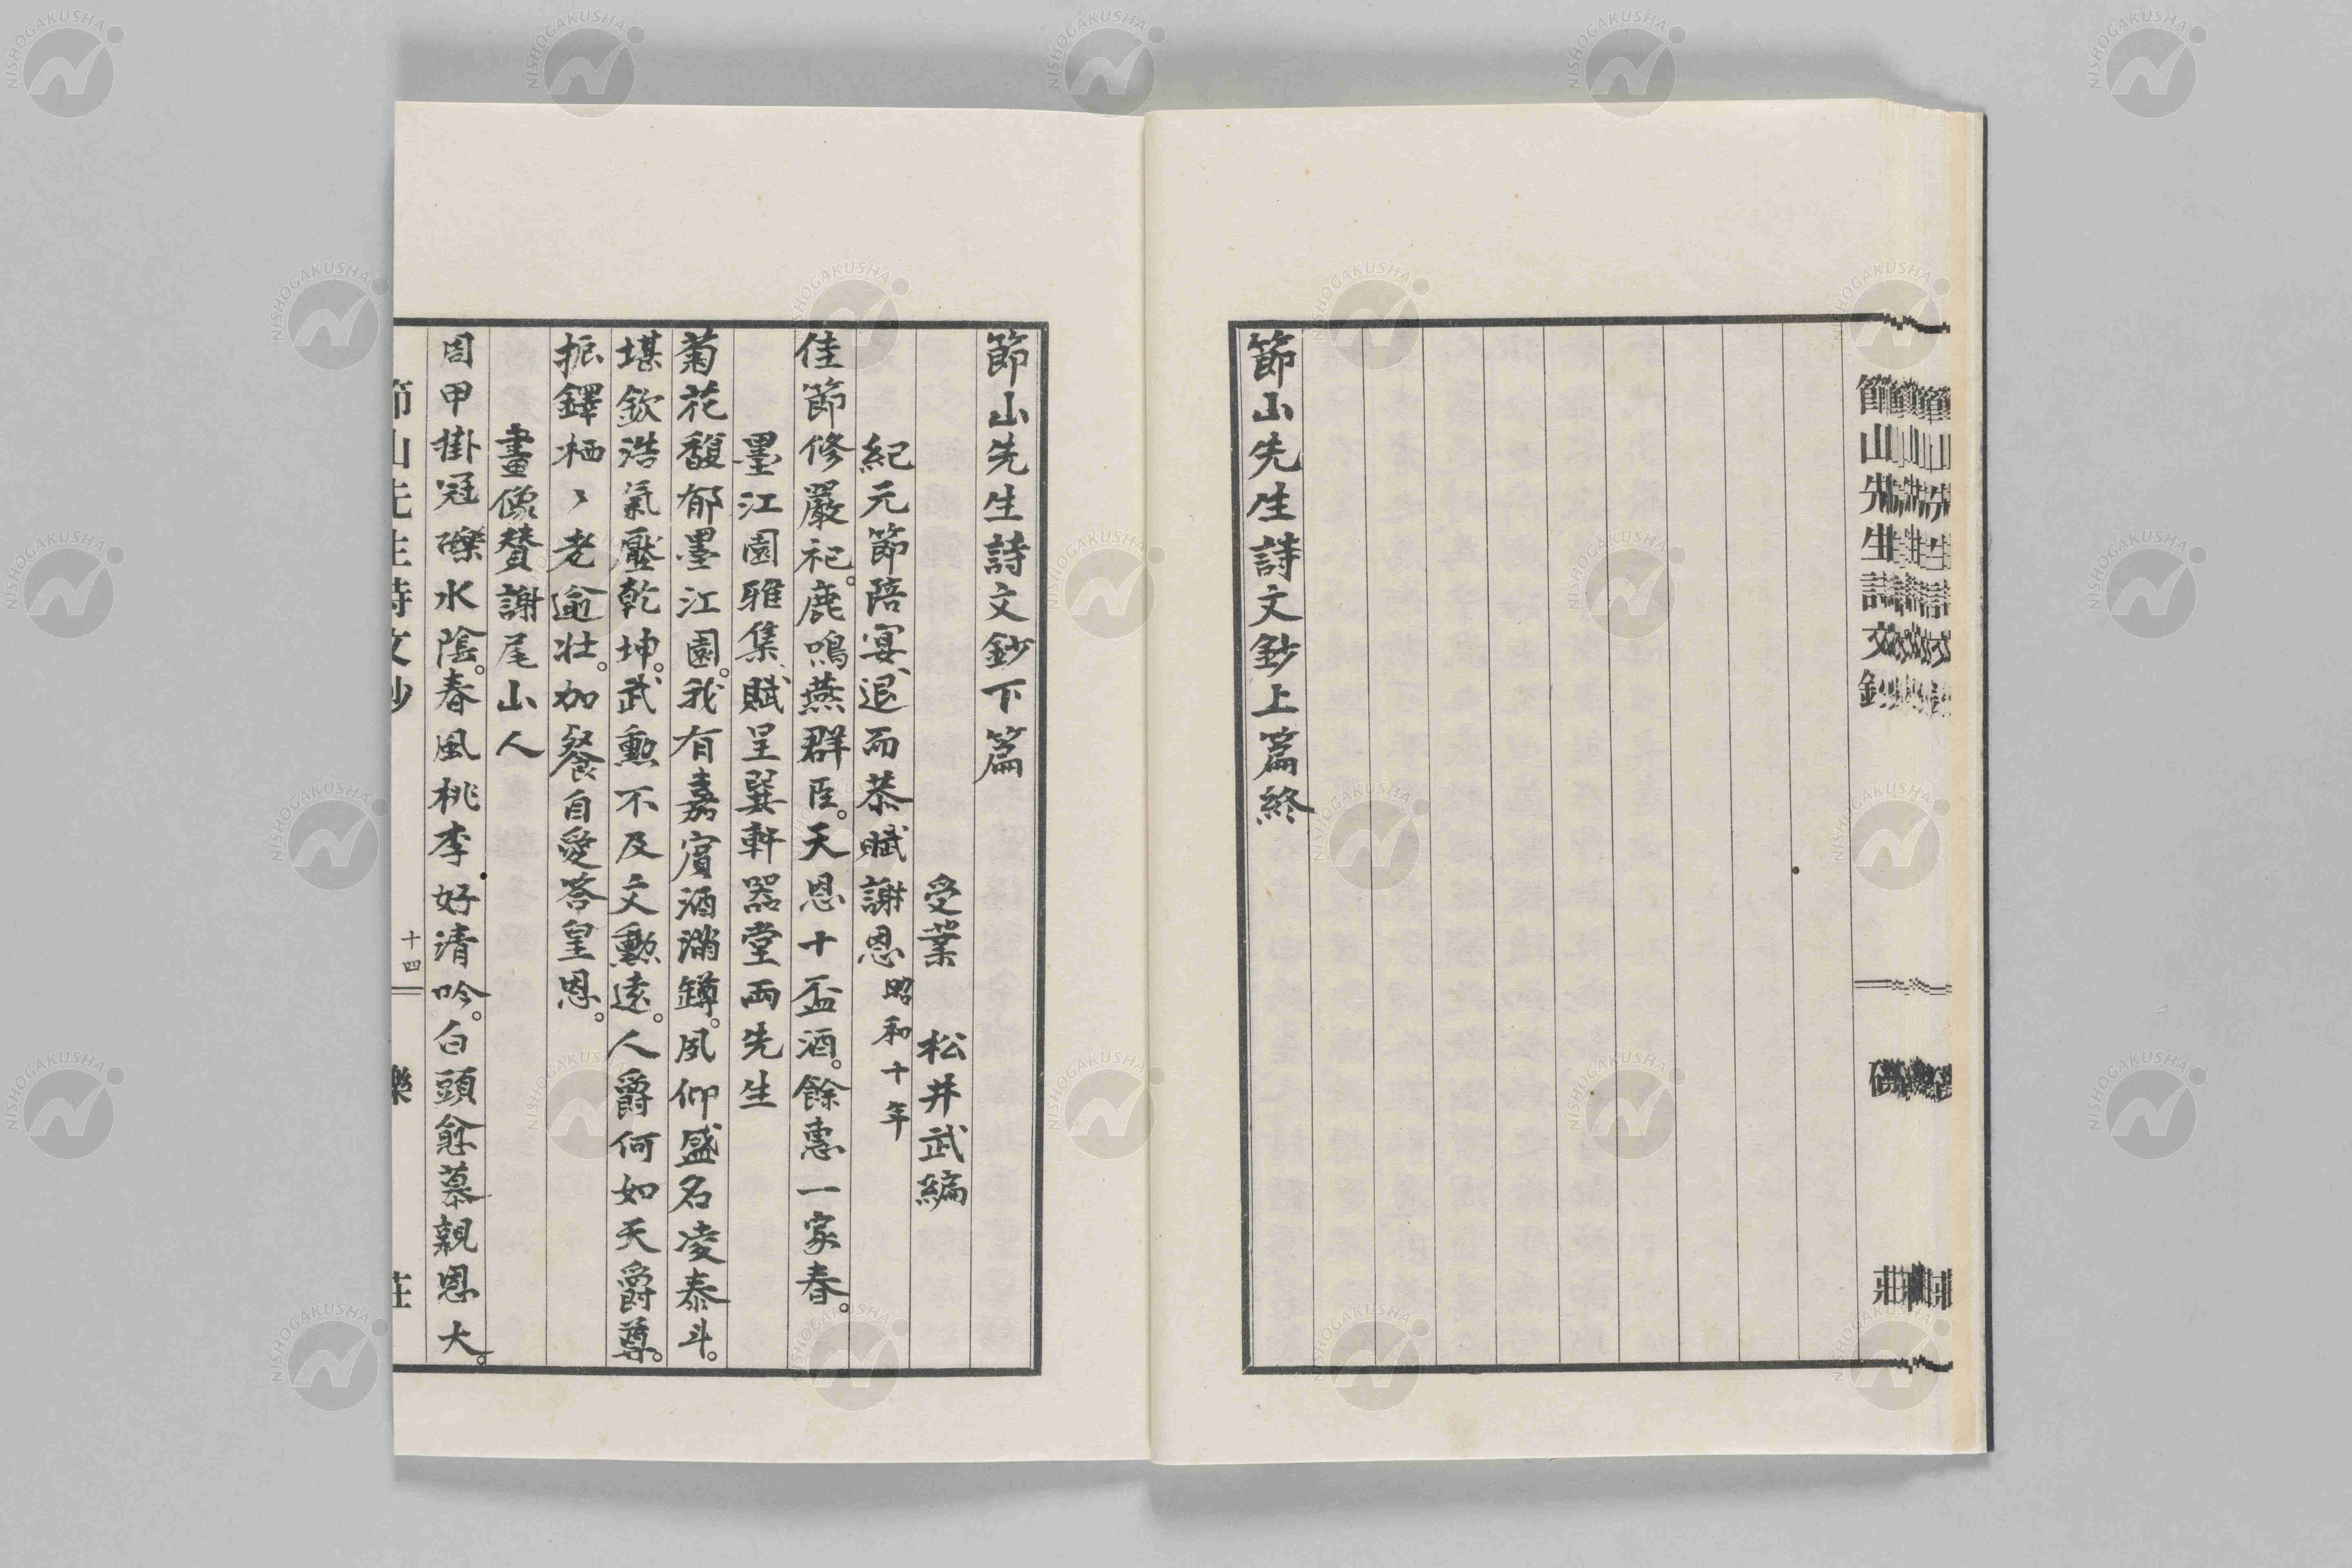 節山先生詩文鈔
礫
莊
節山先生詩文鈔上篇終
節山先生詩文鈔下篇
受業　松井武編
紀元節陪宴、退而恭賦謝恩 昭和十年
佳節修嚴祀。鹿鳴燕群臣。天恩十盃酒。餘惠一家春。
墨江園雅集、賦呈巽軒器堂兩先生
菊花馥郁墨江園。我有嘉賓酒滿罇。夙仰盛名凌泰斗。
堪欽浩氣壓乾坤。武勳不及文勳遠。人爵何如天爵尊。
振鐸栖〻老逾壯。加餐自愛答皇恩。
畫像贊謝尾山人
周甲掛冠礫水陰。春風桃李好清吟。白頭愈慕親恩大。
節山先生詩文鈔
十四
礫
莊
NISHOGAKUSHA